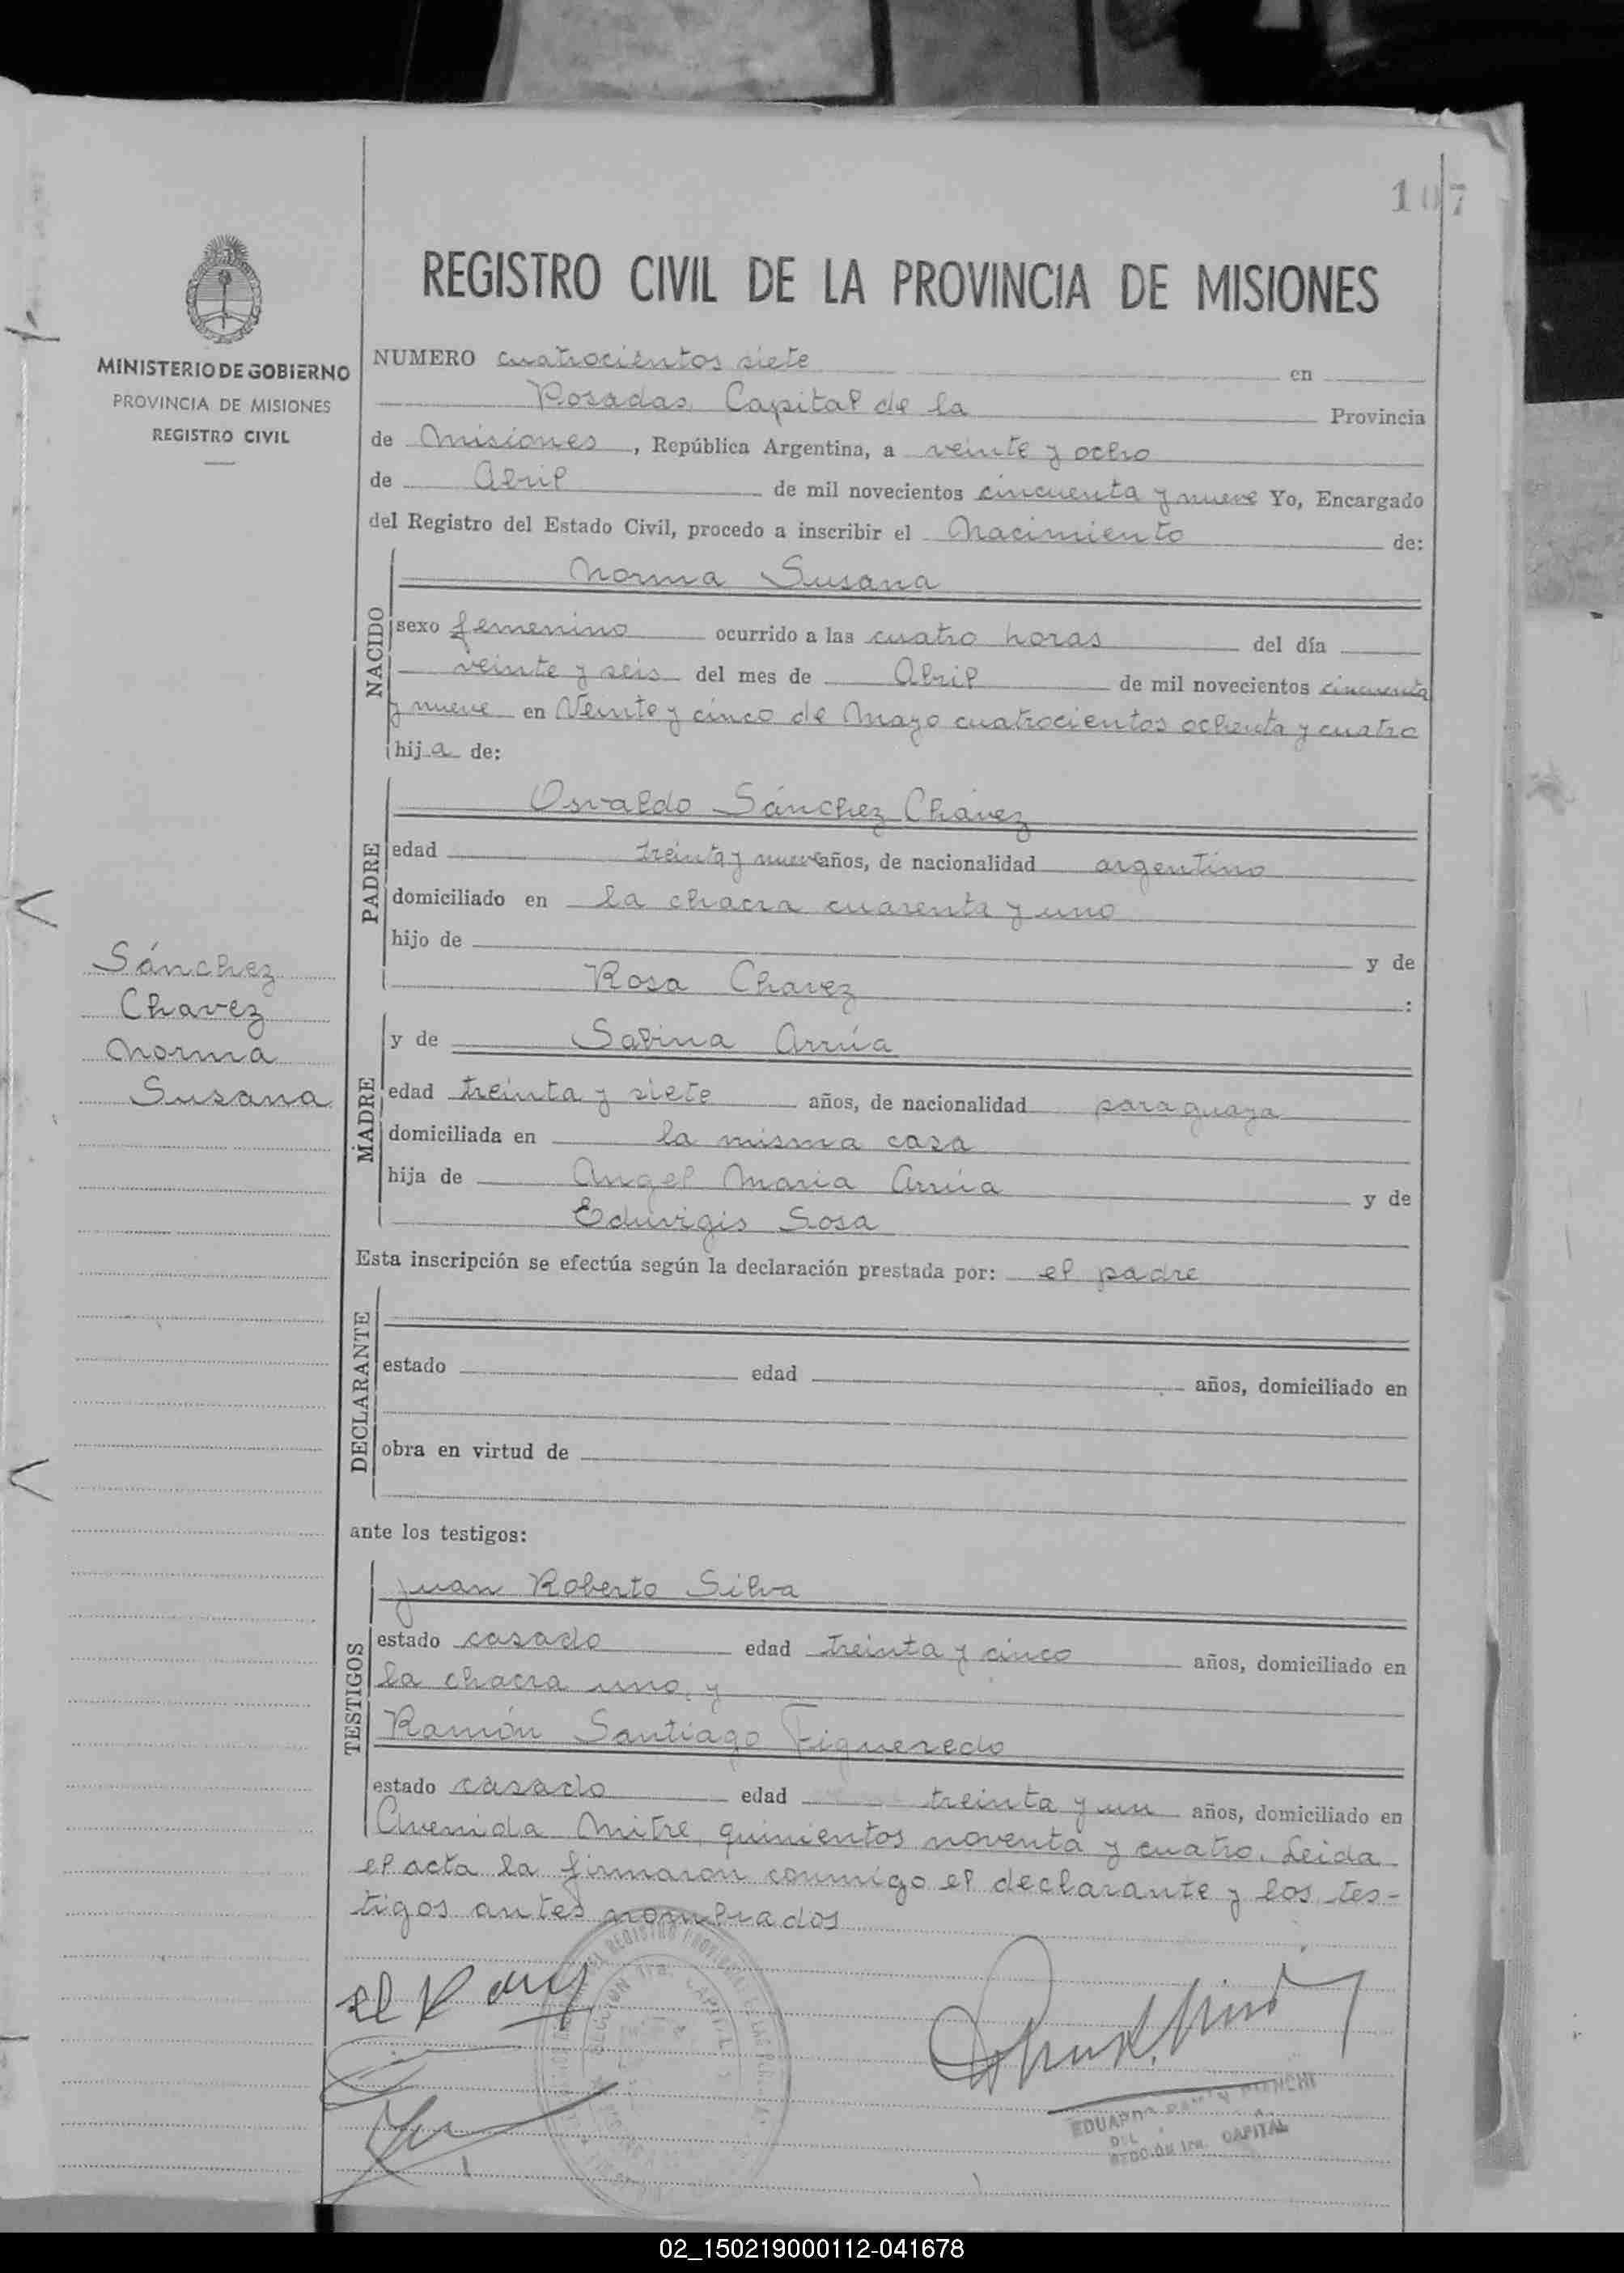 107
REGISTRO CIVIL DE LA PROVINCIA DE MISIONES
MINISTERIO DE GOBIERNO
PROVINCIA DE MISIONES
REGISTRO CIVIL
NUMERO cuatrocientos siete en
Posadas, Capital de la Provincia
de Misiones, República Argentina, a veinte y ocho
de Abril de mil novecientos cincuenta y nueve Yo, Encargado
del Registro del Estado Civil, procedo a inscribir el Nacimiento de:
NACIDO
Norma Susana
sexo femenino ocurrido a las cuatro horas del día
veinte y seis del mes de Abril de mil novecientos cincuenta
y nueve en Veinte y cinco de Mayo cuatrocientos ochenta y cuatro
hija de:
PADRE
Osvaldo Sánchez Chávez
edad treinta y nueve años, de nacionalidad argentino
domiciliado en la chacra cuarenta y uno
hijo de y de
Rosa Chavez :
Sánchez
Chavez
Norma
Susana
MADRE
y de Sabina Arrúa
edad treinta y siete años, de nacionalidad paraguaya
domiciliada en la misma casa
hija de Angel Maria Arrúa y de
Eduvigis Sosa
Esta inscripción se efectúa según la declaración prestada por: el padre
DECLARANTE
estado edad años, domiciliado en
obra en virtud de
ante los testigos:
TESTIGOS
Juan Roberto Silva
estado casado edad treinta y cinco años, domiciliado en
la chacra uno, y
Ramón Santiago Figueredo
estado casado edad treinta y un años, domiciliado en
Avenida Mitre, quinientos noventa y cuatro. Leida
el acta la firmaron conmigo el declarante y los tes-
tigos antes nombrados
REGISTRO PROVINCIAL DE LAS
SECCION 1ra. CAPITAL
EDUARDO RAMON BIANCHI
DEL
SECCION 1ra. CAPITAL
02_150219000112-041678